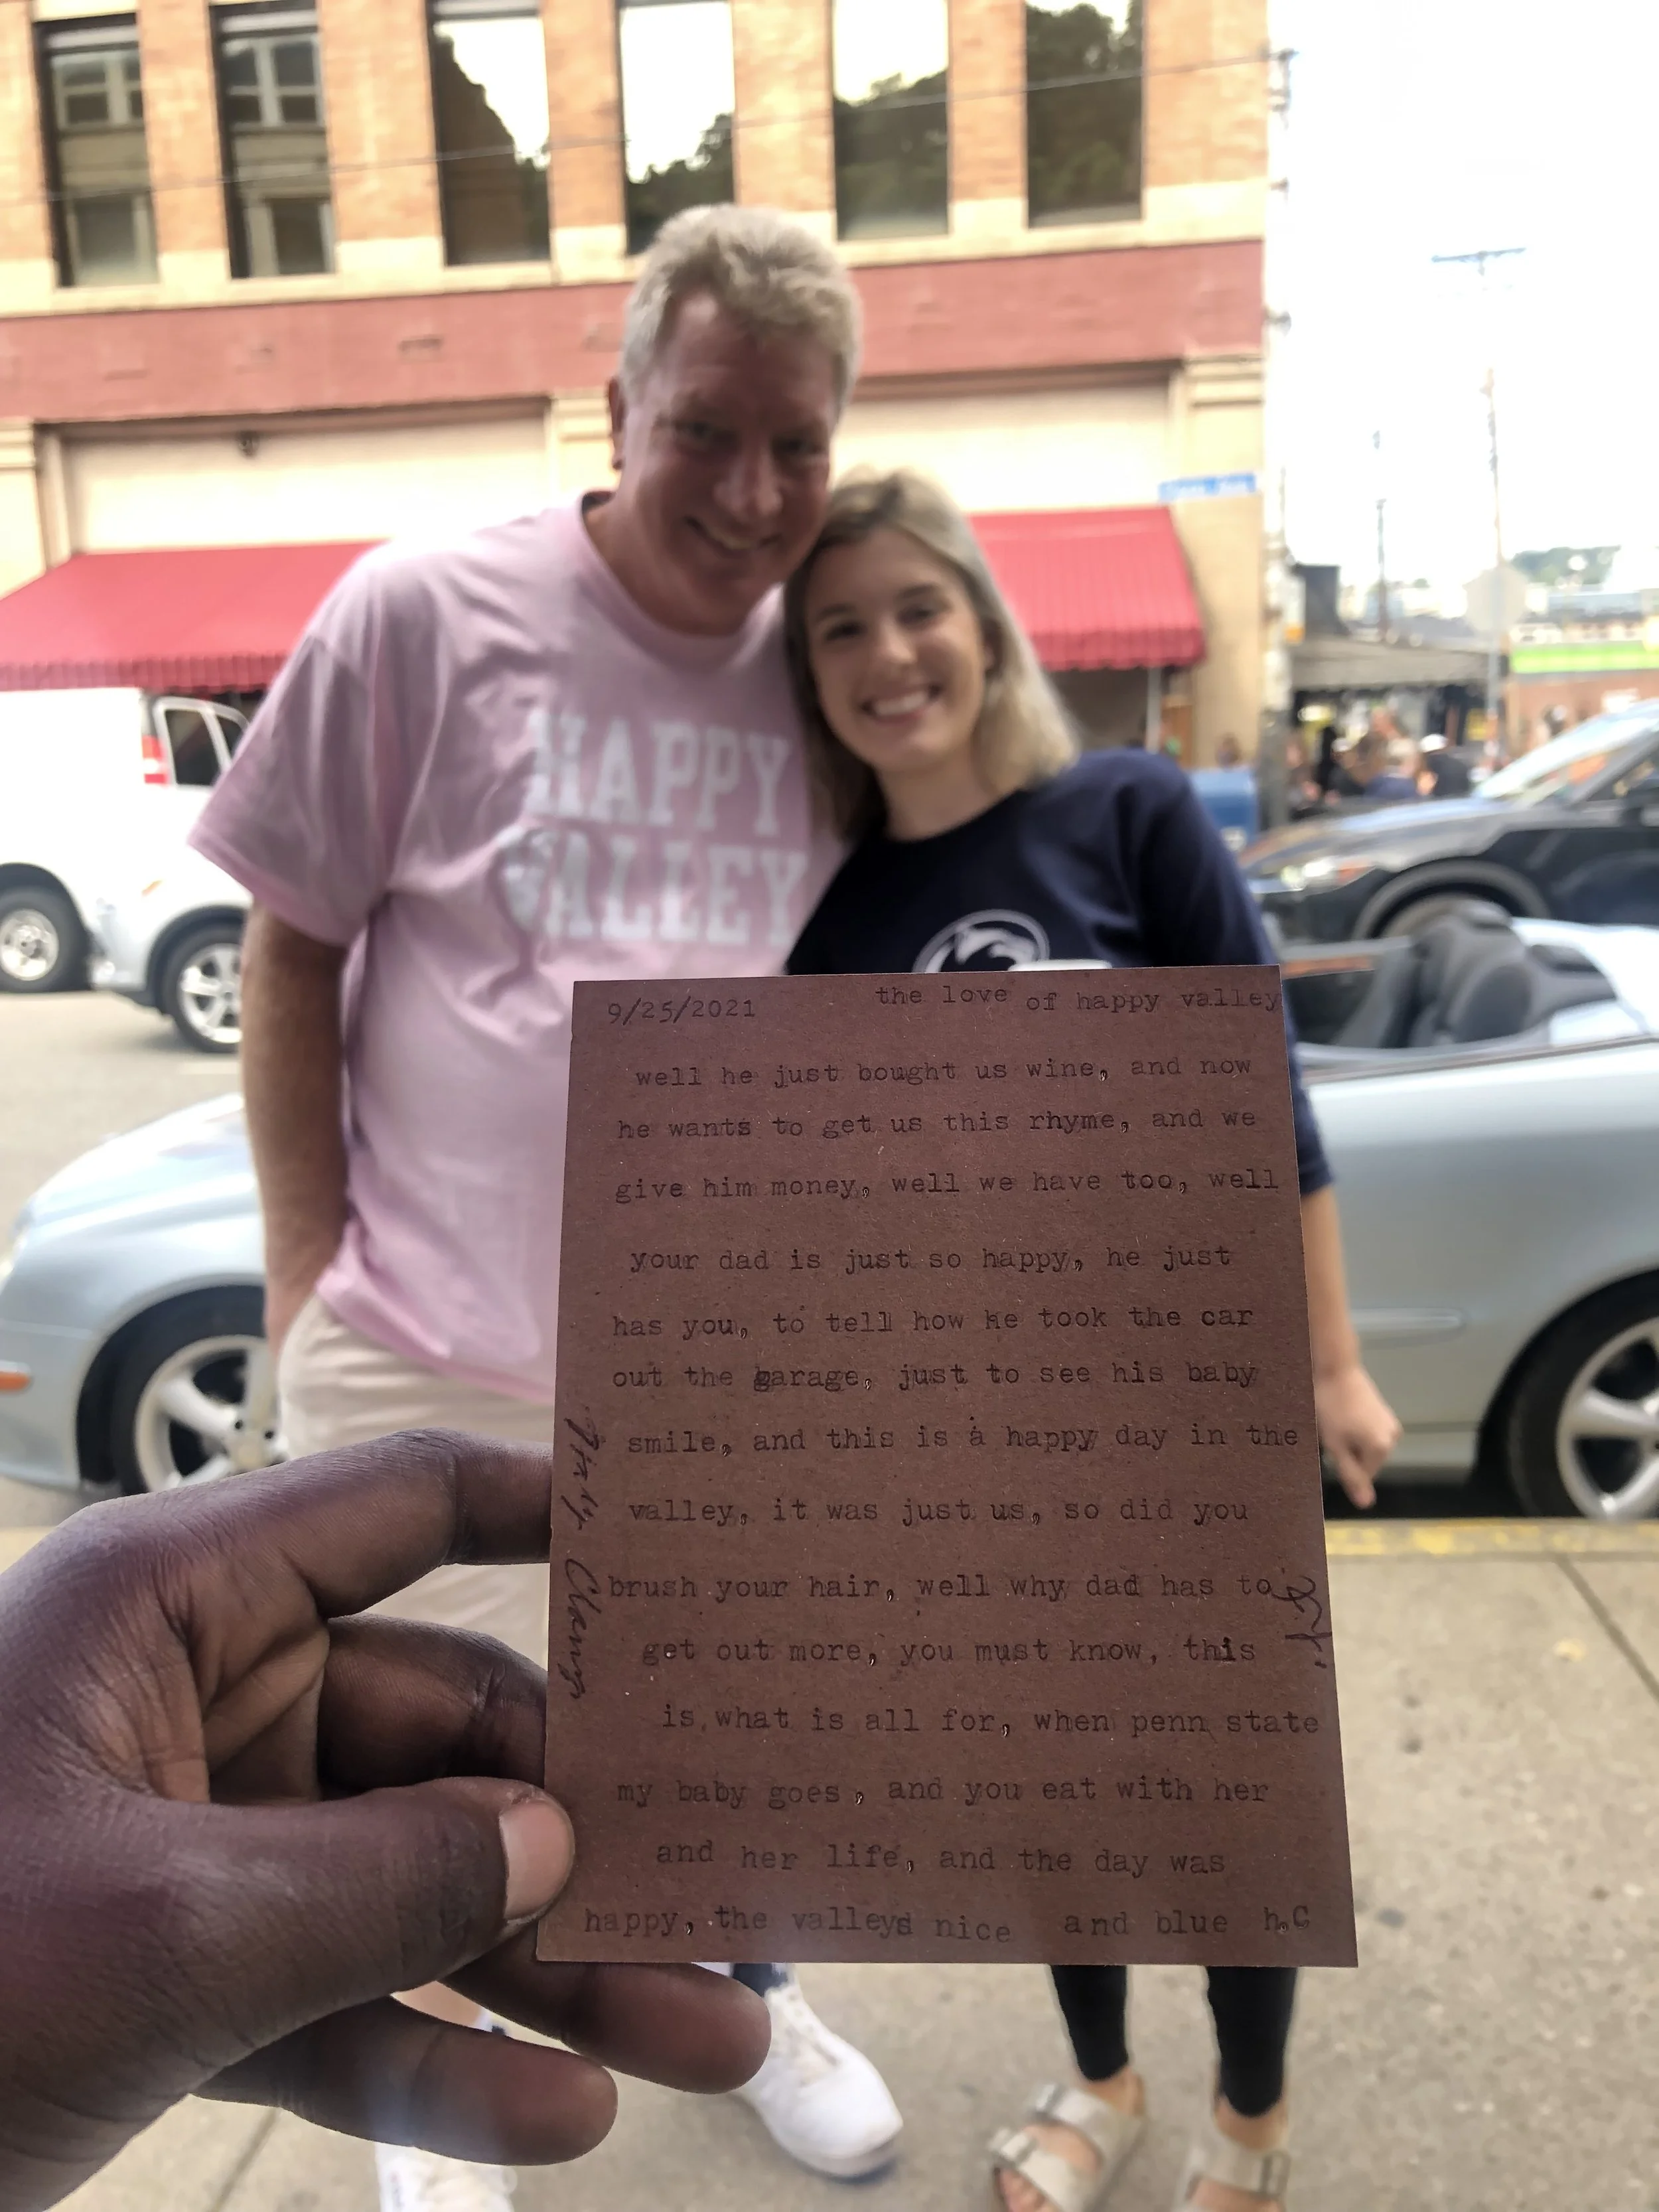 HAPPY
VALLEY
9/25/2021 the love of happy valley
well he just bought us wine, and now
he wants to get us this rhyme, and we
give him money, well we have too, well
your dad is just so happy, he just
has you, to tell how he took the car
out the garage, just to see his baby
smile, and this is a happy day in the
valley, it was just us, so did you
brush your hair, well why dad has to
get out more, you must know, this
is what is all for, when penn state
my baby goes, and you eat with her
and her life, and the day was
happy, the valleys nice and blue h.C